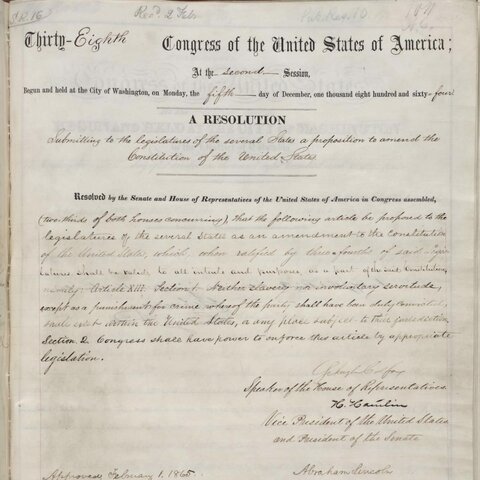 C.R. 16
Rec'd. 2 Feb
Thirty-Eighth Congress of the United States of America;
At the second Session,
Begun and held at the City of Washington, on Monday, the fifth day of December, one thousand eight hundred and sixty-four
A RESOLUTION
Submitting to the legislatures of the several States a proposition to amend the
Constitution of the United States.
Resolved by the Senate and House of Representatives of the United States of America in Congress assembled,
(two-thirds of both houses concurring), that the following article be proposed to the
legislatures of the several States as an amendment to the Constitution
of the United States, which, when ratified by three-fourths of said legis-
latures shall be valid, to all intents and purposes, as a part of the said Constitution,
namely: Article XIII. Section 1. Neither slavery nor involuntary servitude,
except as a punishment for crime whereof the party shall have been duly convicted,
shall exist within the United States, or any place subject to their jurisdiction.
Section 2. Congress shall have power to enforce this article by appropriate
legislation.
Schuyler Colfax
Speaker of the House of Representatives.
H. Hamlin
Vice President of the United States
and President of the Senate
Approved, February 1. 1865.
Abraham Lincoln